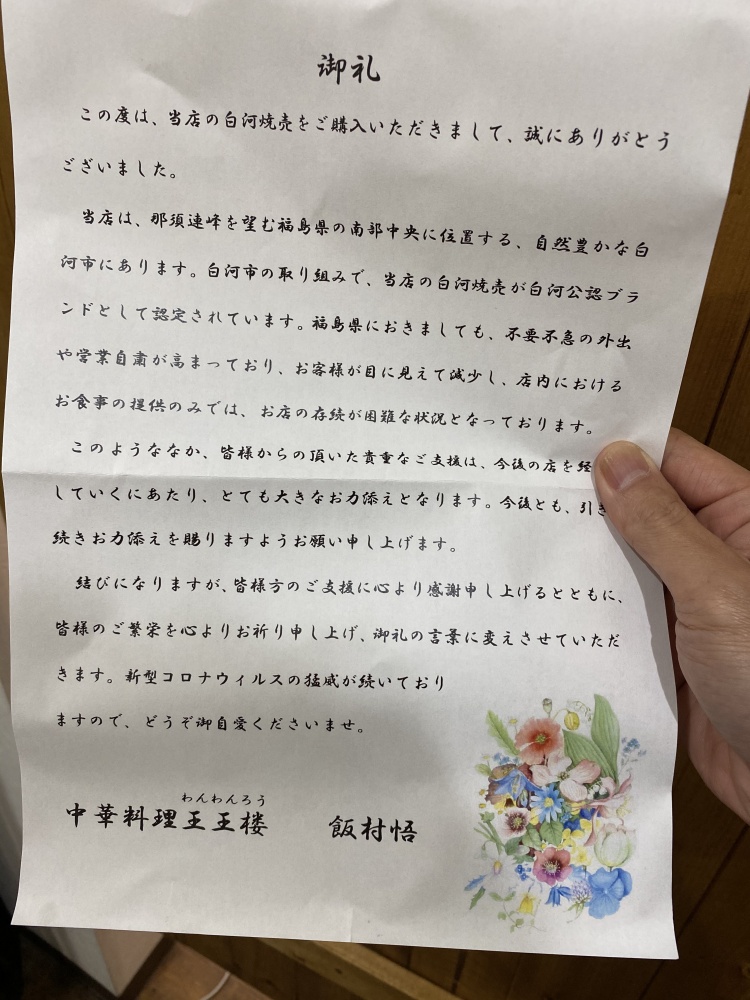 御礼
この度は、当店の白河焼売をご購入いただきまして、誠にありがとう
ございました。
当店は、那須連峰を望む福島県の南部中央に位置する、自然豊かな白
河市にあります。白河市の取り組みで、当店の白河焼売が白河公認ブラ
ンドとして認定されています。福島県におきましても、不要不急の外出
や営業自粛が高まっており、お客様が目に見えて減少し、店内における
お食事の提供のみでは、お店の存続が困難な状況となっております。
このようななか、皆様からの頂いた貴重なご支援は、今後の店を経
していくにあたり、とても大きなお力添えとなります。今後とも、引き
続きお力添えを賜りますようお願い申し上げます。
結びになりますが、皆様方のご支援に心より感謝申し上げるとともに、
皆様のご繁栄を心よりお祈り申し上げ、御礼の言葉に変えさせていただ
きます。新型コロナウィルスの猛威が続いており
ますので、どうぞ御自愛くださいませ。
わんわんろう
中華料理王王楼 飯村悟